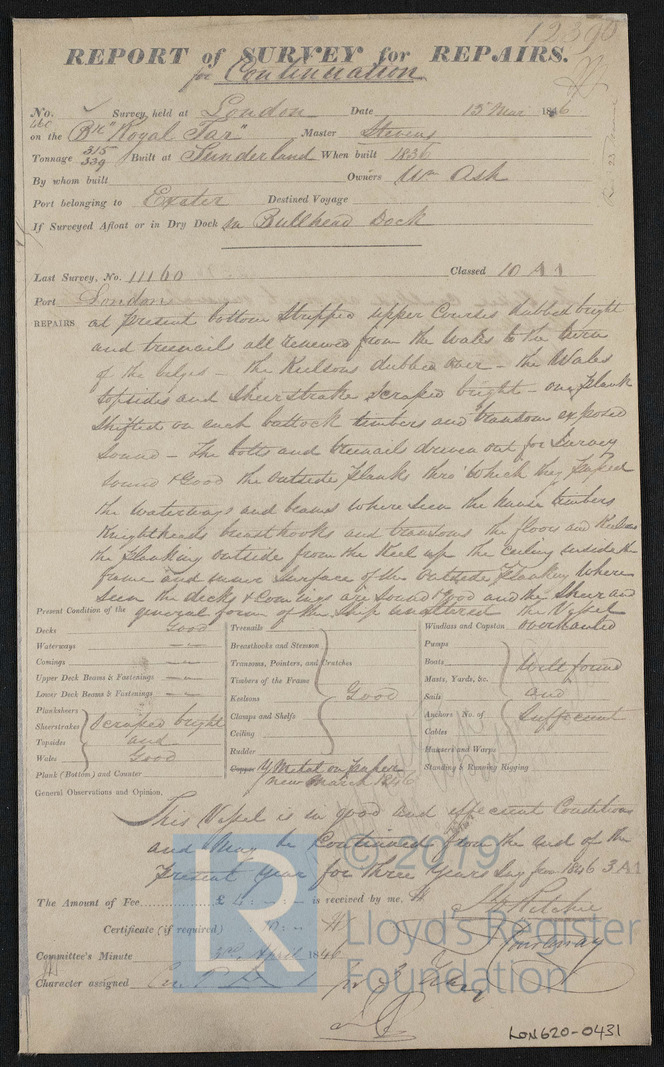 12390
REPORT of SURVEY for REPAIRS.
for Continuation
No. Survey, held at London Date 13 Mar 1846
on the Bn "Royal Tar" Master Stevens
Tonnage 315 339 Built at Sunderland When built 1836
By whom built Owners Wm Ash
Port belonging to Exeter Destined Voyage
If Surveyed Afloat or in Dry Dock in Bullhead Dock
Last Survey, No. 11160 Classed 10 A1
Port London
REPAIRS at present bottom Stripped upper Courses dubbed bright
and treenails all renewed from the Wales to the turn
of the bilges - the Keelsons dubbed over - the Wales
topsides and Sheerstrake scraped bright - one plank
shifted on each buttock timbers and transom exposed
sound - The bolts and treenails driven out for Survey
sound & Good the outside planks thro' which they passed
the waterways and beams where seen the hawse timbers
Knightheads breasthooks and transoms the floors and Keelsons
the planking outside from the Keel up the ceiling inside the
frame and inner surface of the outside planking where
seen the decks & Comings are sound & good and the Sheer and
general form of the Ship unaltered the Vessel
overhauled
Present Condition of the
Decks Good
Waterways
Comings
Upper Deck Beams & Fastenings
Lower Deck Beams & Fastenings
Planksheers
Sheerstrakes
Topsides
Wales
scraped bright and Good
Plank (Bottom) and Counter
Treenails
Breasthooks and Stemson
Transoms, Pointers, and Crutches
Timbers of the Frame
Keelsons
Clamps and Shelfs
Ceiling
Rudder
Good
Copper Y Metal on paper
new March 1846
Windlass and Capston
Pumps
Boats
Masts, Yards, &c.
Sails
Anchors No. of
Cables
Hausers and Warps
Standing & Running Rigging
Well found
and
Sufficient
General Observations and Opinion,
This Vessel is in good and efficient Condition
and May be Continued from the end of the
present Year for three Years Say from 1846 3 A1
The Amount of Fee £ is received by me,
Certificate (if required)
Committee's Minute 3rd. April 1846
Character assigned
© 2019
Lloyd's Register
Foundation
LR
LON620-0431